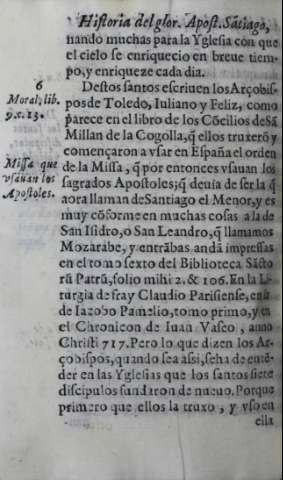 Historia del glor. Apost. Sãtiago,
nando muchas para la Yglesia con que
el cielo se enriquecio en breue tiem-
po, y enriqueze cada dia.
6
Moral, lib.
9.c.23.
Destos santos escriuen los Arçobis-
pos de Toledo, Iuliano y Feliz, como
parece en el libro de los Cõcilios de Sã
Millan de la Cogolla, q̃ ellos truxerõ y
començaron a vsar en España el orden
de la Missa, q̃ por entonces vsauan los
sagrados Apostoles; q̃ deuia de ser la q̃
aora llaman de Santiago el Menor, y es
muy cõforme en muchas cosas a la de
San Isidro, o San Leandro, q̃ llamamos
Mozarabe, y entrãbas andã impressas
en el tomo sexto del Biblioteca Sãcto
rũ Patrũ, folio mihi 2. & 106. En la Li-
turgia de fray Claudio Parisiense, en la
de Iacobo Pamelio, tomo primo, y en
el Chronicon de Iuan Vaseo, anno
Christi 717. Pero lo que dizen los Ar-
çobispos, quando sea assi, se ha de entẽ-
der en las Yglesias que los santos siete
discipulos fundaron de nueuo. Porque
primero que ellos la truxo, y vso en
ella
Missa que
vsauan los
Apostoles.